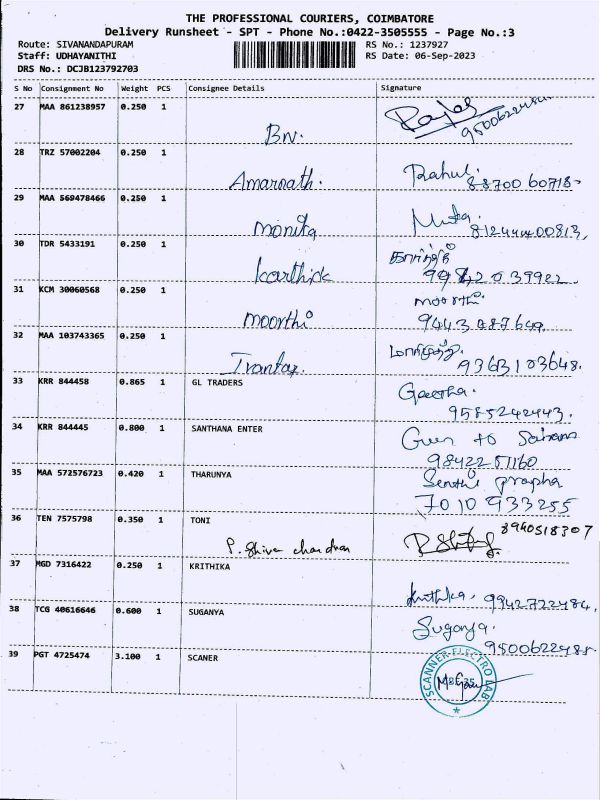 THE PROFESSIONAL COURIERS, COIMBATORE
Delivery Runsheet - SPT - Phone No.:0422-3505555 - Page No.:3
Route: SIVANANDAPURAM RS No.: 1237927
Staff: UDHAYANITHI RS Date: 06-Sep-2023
DRS No.: DCJB123792703
S No Consignment No Weight PCS Consignee Details Signature
27 MAA 861238957 0.250 1
Bn.
28 TRZ 57002204 0.250 1
Amarnath. Rahul. 88700 60718-
29 MAA 569478466 0.250 1
monita 8124440813,
30 TDR 5433191 0.250 1
karthick கார்த்திக் 99420 39922.
31 KCM 30060568 0.250 1
moorthi 9443
32 MAA 103743365 0.250 1
93631 03648.
33 KRR 844458 0.865 1 GL TRADERS
Geetha. 9585242443.
34 KRR 844445 0.800 1 SANTHANA ENTER
to 98422 51160
35 MAA 572576723 0.420 1 THARUNYA
Senthil prapha 7010933255
36 TEN 7575798 0.350 1 TONI
P. Shiva chandran 8940518307
37 MGD 7316422 0.250 1 KRITHIKA
Krithika. 9942722484.
38 TCG 40616646 0.600 1 SUGANYA
Suganya. 9500622488-
39 PGT 4725474 3.100 1 SCANER
SCANNER ELECTRO LAB